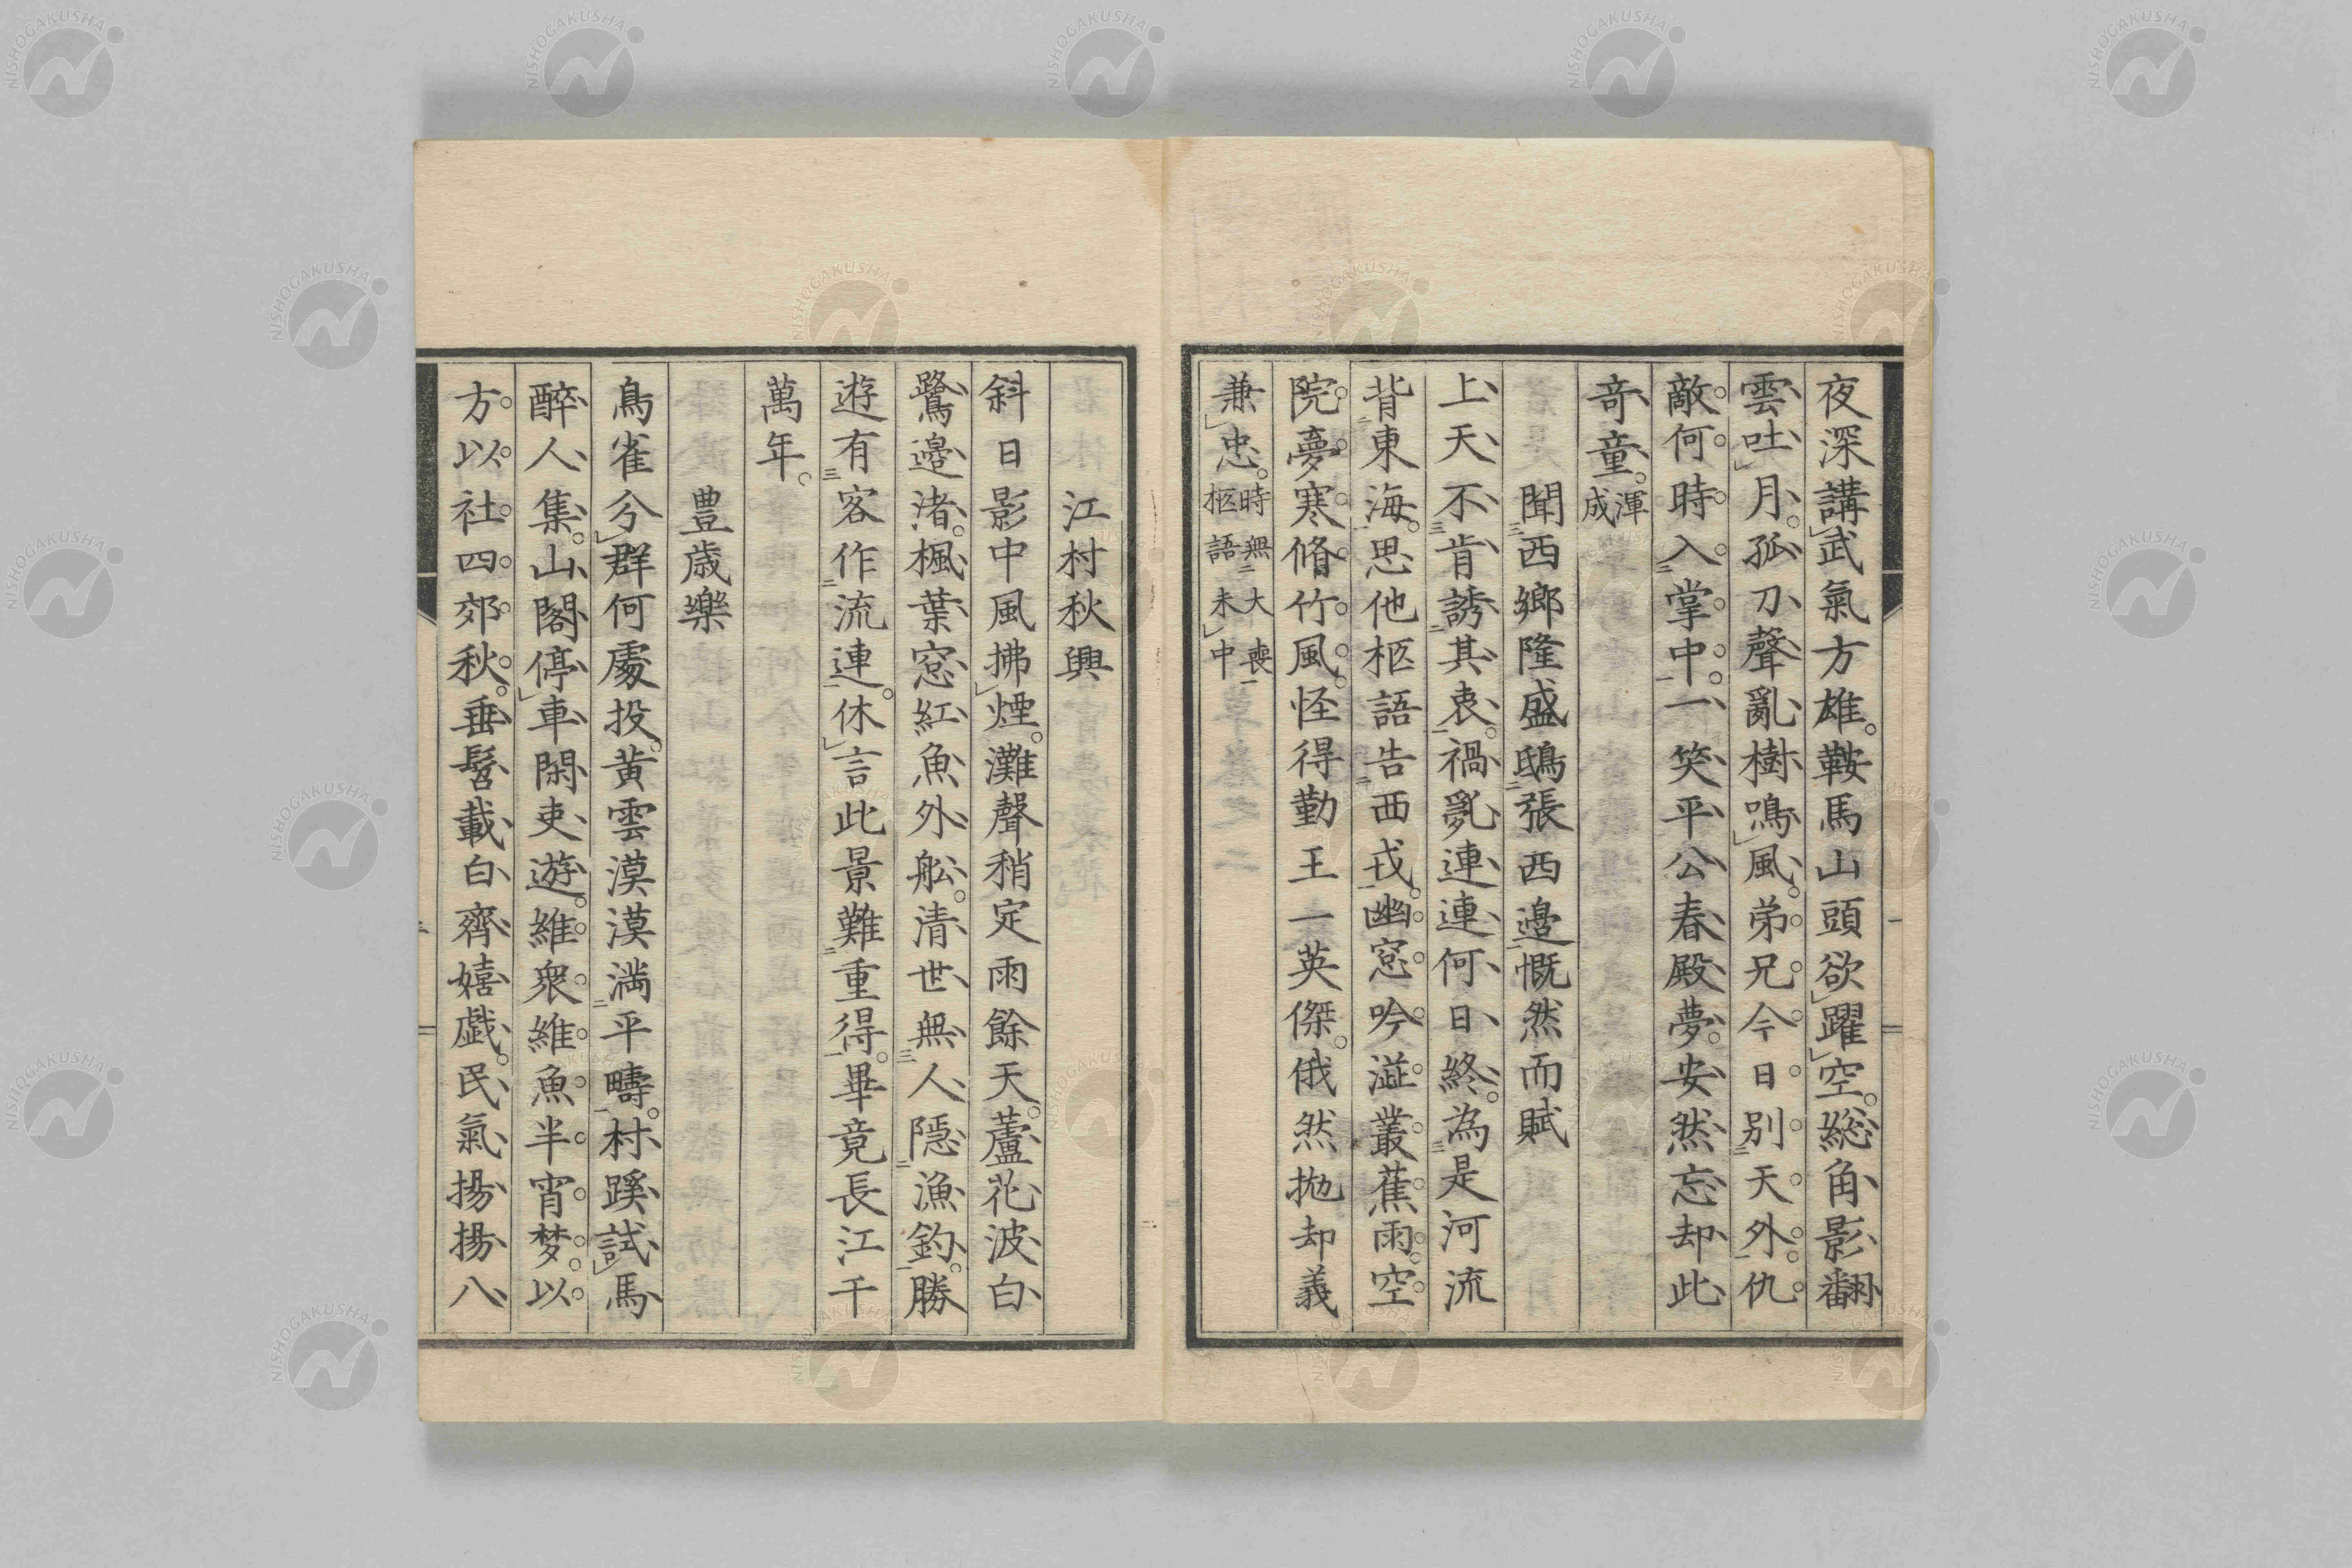 夜深講武氣方雄。鞍馬山頭欲躍空。総角影翻
雲吐月。孤刀聲亂樹鳴風。弟兄今日別天外。仇
敵何時入掌中。一笑平公春殿夢。安然忘却此
奇童。渾成
聞西郷隆盛鴟張西邊慨然而賦
上天不肯誘其衷。禍亂連連何日終。為是河流
背東海。思他柩語告西戎。幽窓吟湓叢蕉雨。空
院夢寒脩竹風。怪得勤王一英傑。俄然拋却義
兼忠。時無大喪柩語未中
江村秋興
斜日影中風拂煙。灘聲稍定雨餘天。蘆花波白
鷺邊渚。楓葉窓紅魚外舩。清世無人隠漁釣。勝
遊有客作流連。休言此景難重得。畢竟長江千
萬年。
豊歳樂
鳥雀兮群何處投。黄雲漠漠満平疇。村蹊試馬
醉人集。山閣停車閑吏遊。維衆維魚半宵梦。以
方以社四郊秋。垂髫載白齊嬉戯。民氣揚揚八
NISHOGAKUSHA